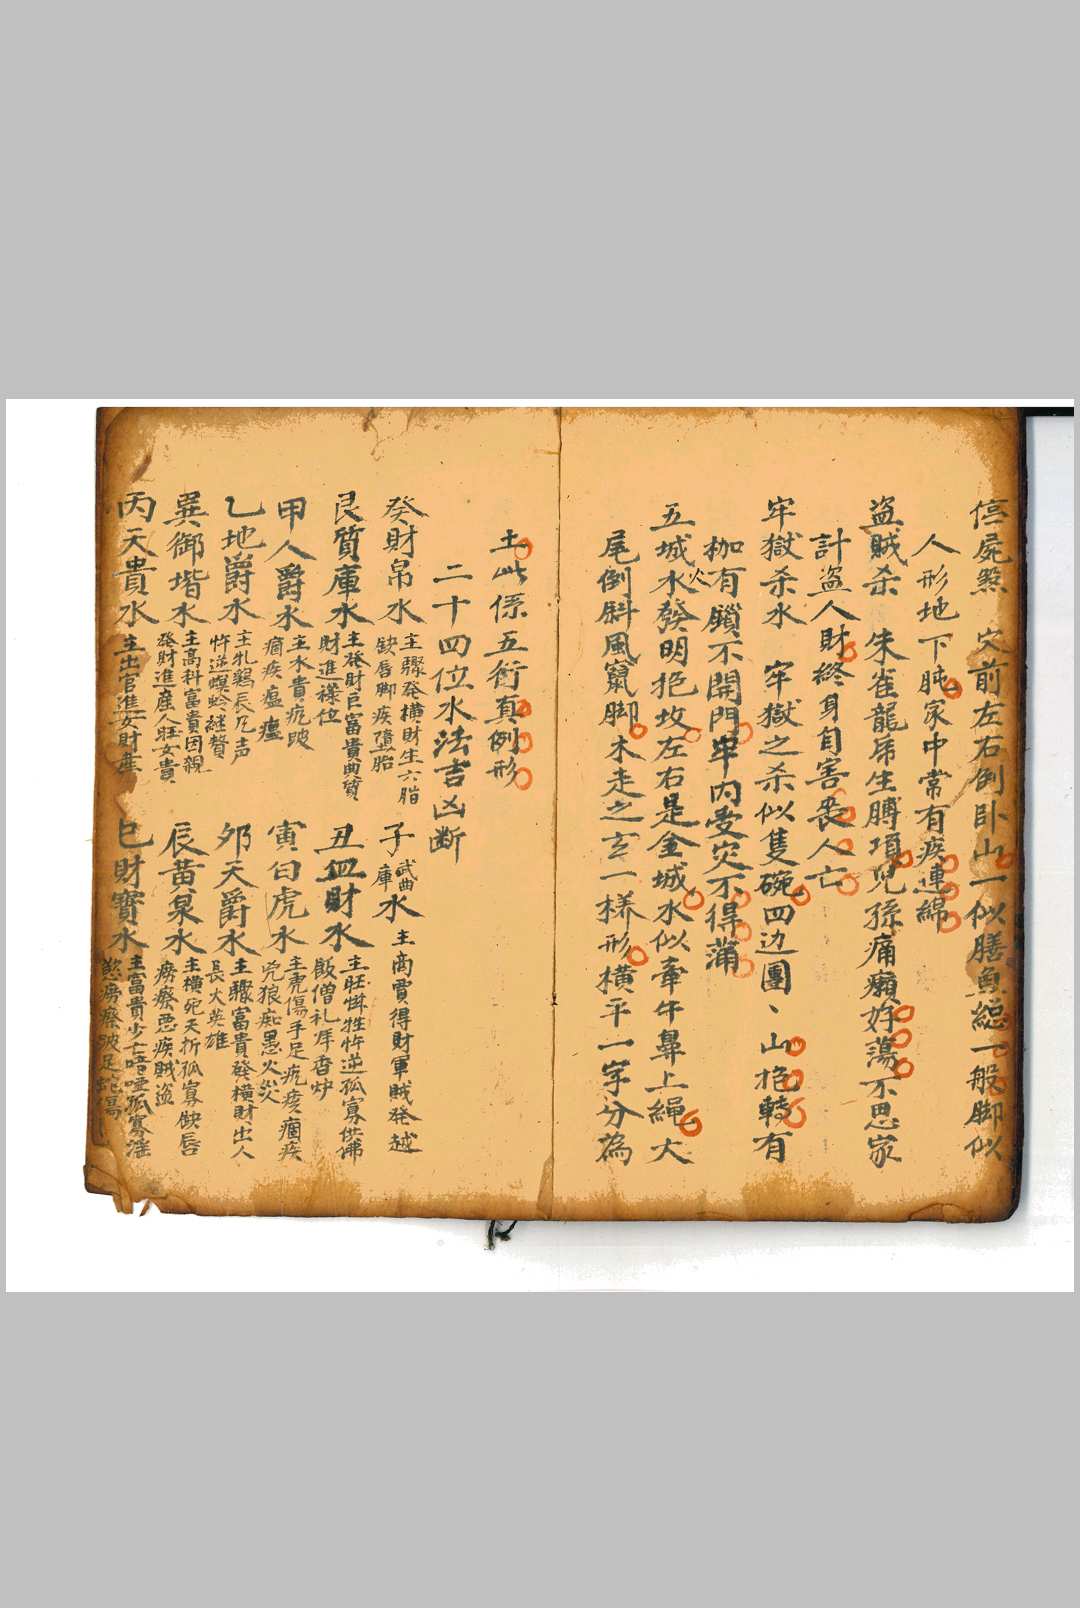 停屍煞　穴前左右倒卧山一似膳魚總一般脚似
人形地下肫家中常有疾連綿
盗賊杀　朱雀龍帍生膊項兒孫痛癩姩蕩不思家
計盗人財終身自害喪人亡
牢獄杀水　牢獄之杀似隻碗四边團、山抱轉有
枷有鎖不開門牢内受灾不得蒲
五城水發明抱坟左右是金城水似牽牛鼻上繩火大
尾倒斜風竄脚木走之玄一様形横平一字分為
土此係五衍真例形
二十四位水法吉凶断
癸財帛水　主驟発横財生六脂
缺唇脚疾墮胎
子武曲庫水　主商賈得財軍賊発越
艮質庫水　主発財巨富貴典質
財進禄位
丑血財水　主旺牲忤逆孤寡供佛
飯僧礼拜香炉
甲人爵水　主木貴疕跛
痼疾瘟㾮
寅白虎水　主虎傷手足疕痪痼疾
兇狼痴愚火災
乙地爵水　主乳鵝長凢声
忤逆螟蛉継贅
夘天爵水　主驟富貴發横財出人
長大英雄
巽御堦水　主高科富貴因親
発財進産人旺女貴
辰黄泉水　主横死夭折孤寡缺唇
痨瘵惡疾賊盗
丙天貴水　主出官進女財産
巳財寶水　主富貴少亡喑啞孤寡滛
慾痨瘵跛足蛇傷